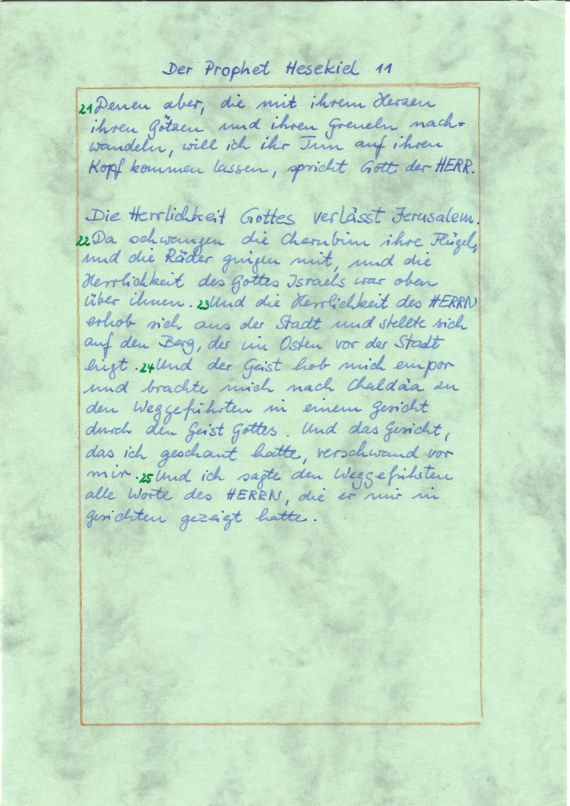 Der Prophet Hesekiel 11
21 Denen aber, die mit ihrem Herzen
ihren Götzen und ihren Greueln nach=
wandeln, will ich ihr Tun auf ihren
Kopf kommen lassen, spricht Gott der HERR.
Die Herrlichkeit Gottes verlässt Jerusalem.
22 Da schwangen die Cherubim ihre Flügel,
und die Räder gingen mit, und die
Herrlichkeit des Gottes Israels war oben
über ihnen. 23 Und die Herrlichkeit des HERRN
erhob sich aus der Stadt und stellte sich
auf den Berg, der im Osten vor der Stadt
liegt. 24 Und der Geist hob mich empor
und brachte mich nach Chaldäa zu
den Weggeführten in einem Gesicht
durch den Geist Gottes. Und das Gesicht,
das ich geschaut hatte, verschwand vor
mir. 25 Und ich sagte den Weggeführten
alle Worte des HERRN, die er mir in
Gesichten gezeigt hatte.